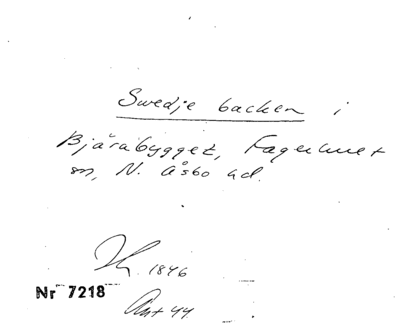 Swedje backen i
Bjärabygget, Fagerhult
sn, N. Åsbo hd.
1846
Nr 7218
Ant 44